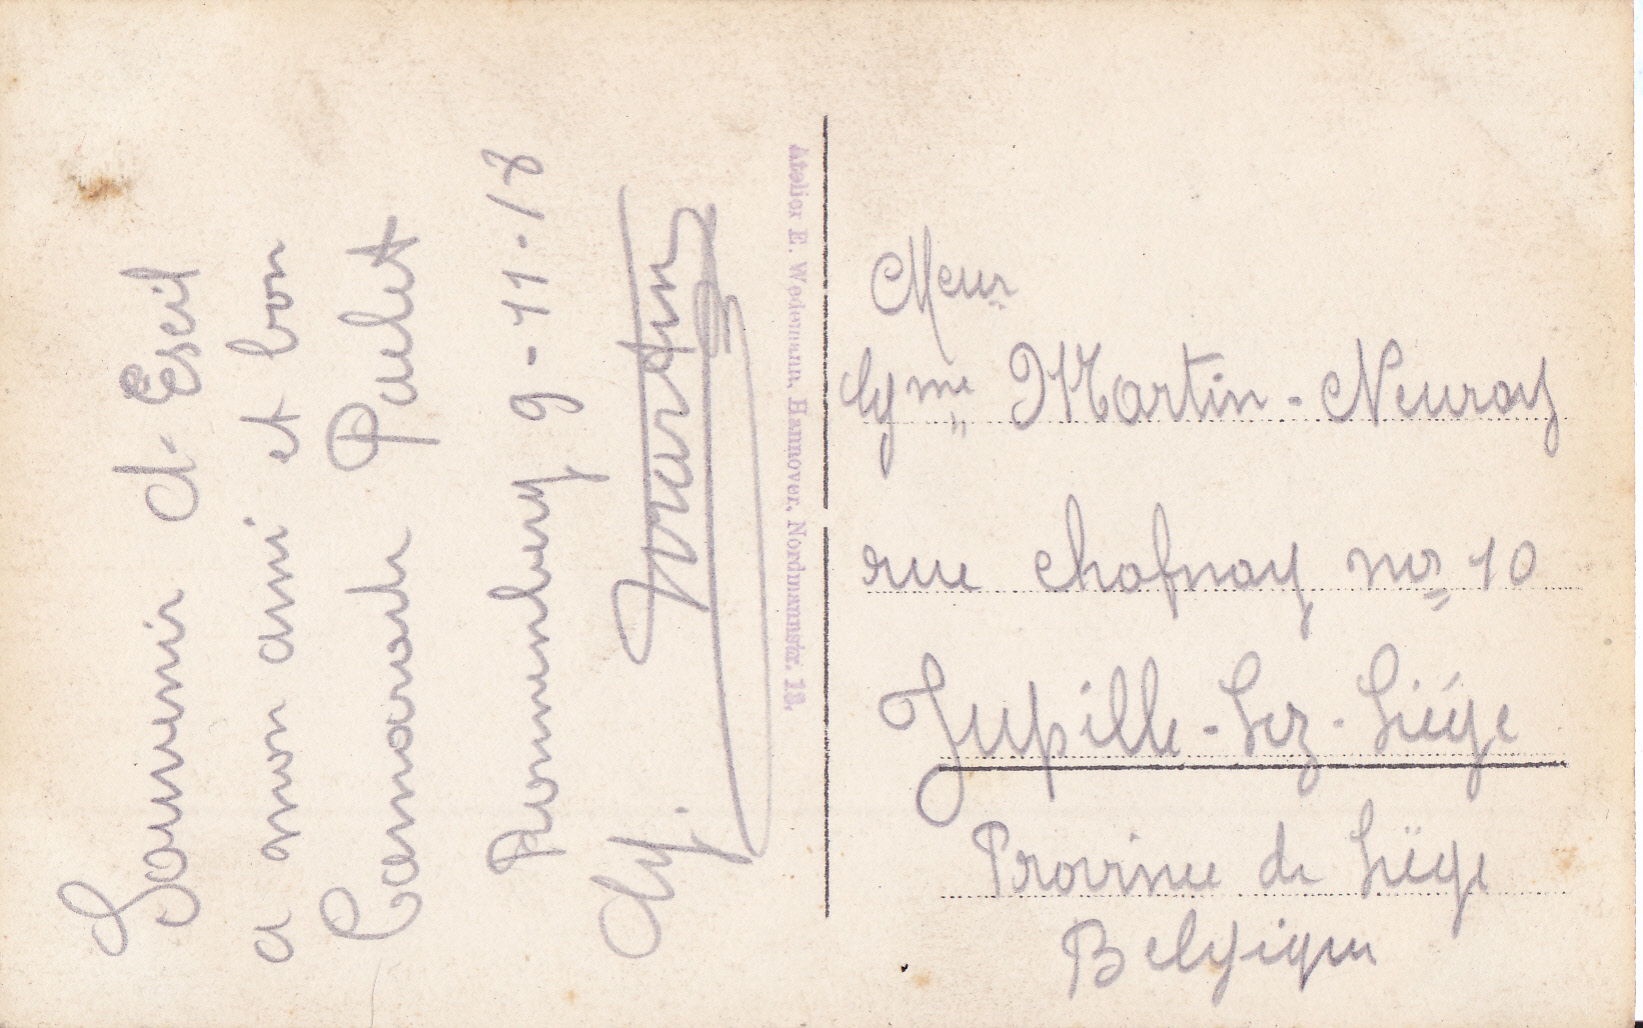 Souvenir d'Exeil
a mon ami et bon
Camarade Paulet
9-11-17
Martin
Atelier E. Wedemann, Hannover, Nordmannstr. 13.
Meur
Martin-Neuray
rue chafnay no 10
Jupille-Lez-Liége
Province de Liége
Belgique